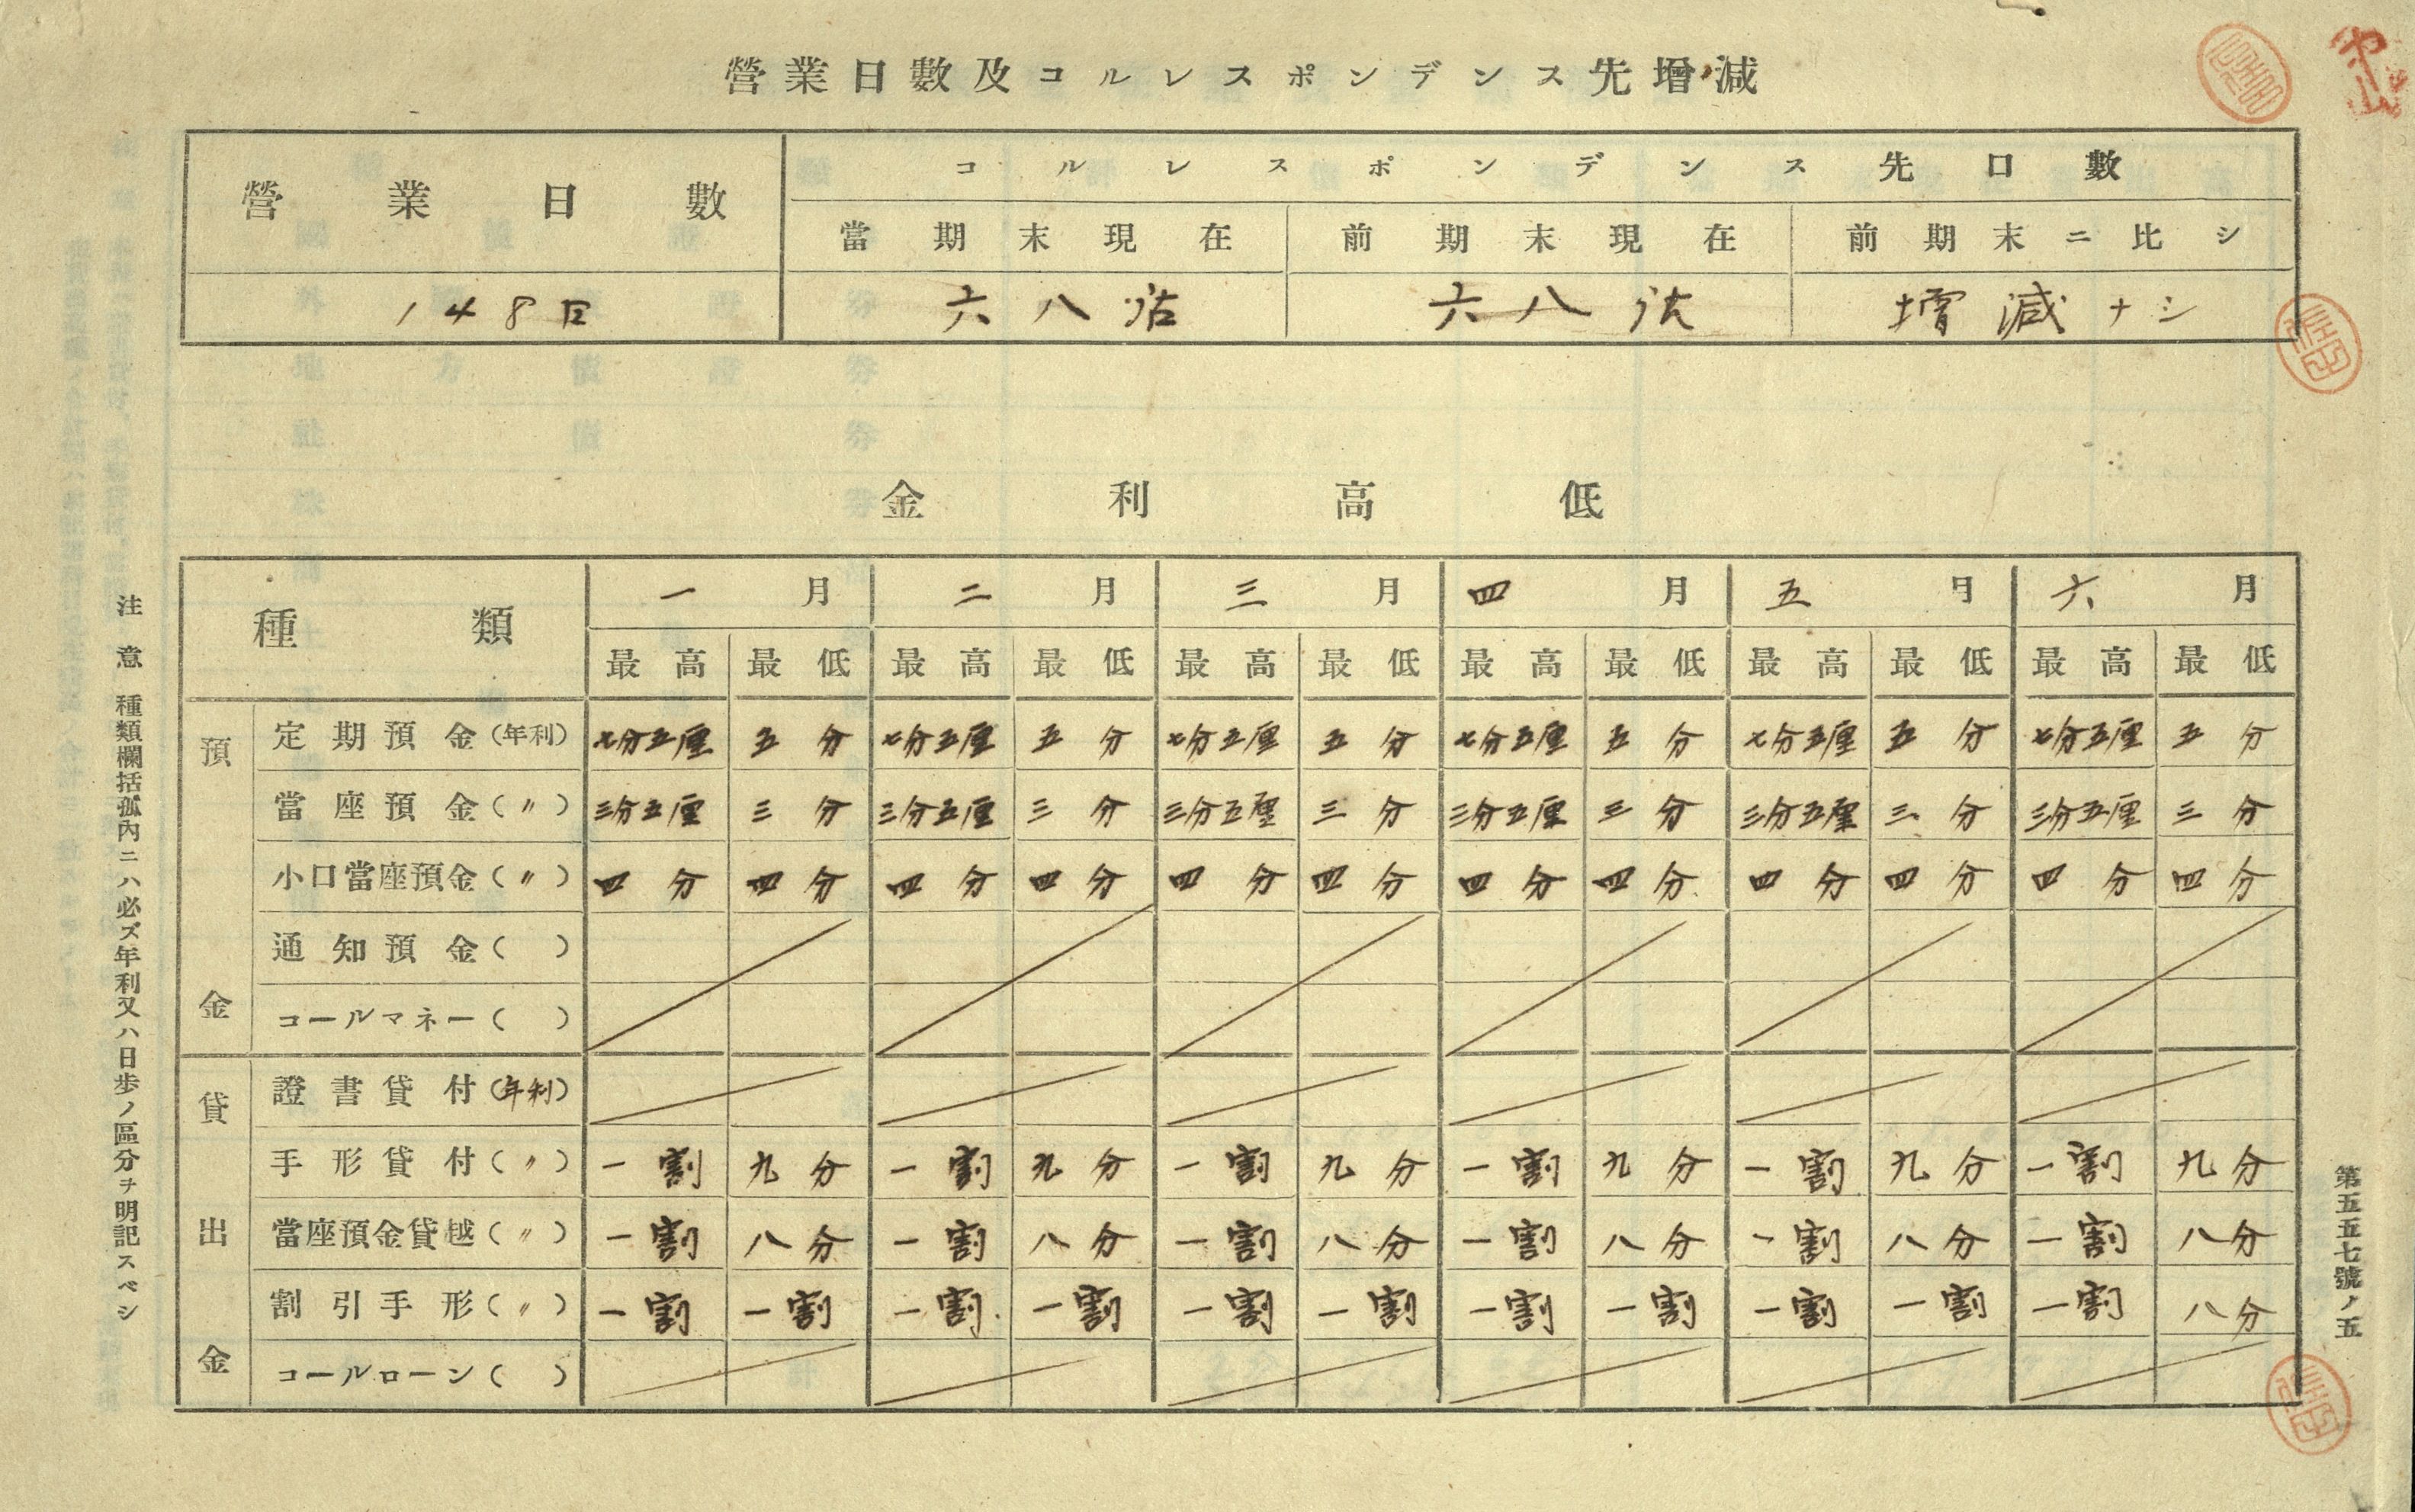 營業日數及コルレスポンデンス先增減
營業日數 コルレスポンデンス先口數
當期末現在 前期末現在 前期末ニ比シ
148日 六八 六八 增減ナシ
金利高低
種類 一月 二月 三月 四月 五月 六月
最高 最低 最高 最低 最高 最低 最高 最低 最高 最低 最高 最低
預金
定期預金(年利) 七分五厘 五分 七分五厘 五分 七分五厘 五分 七分五厘 五分 七分五厘 五分 七分五厘 五分
當座預金(〃) 三分五厘 三分 三分五厘 三分 三分五厘 三分 三分五厘 三分 三分五厘 三分 三分五厘 三分
小口當座預金(〃) 四分 四分 四分 四分 四分 四分 四分 四分 四分 四分 四分 四分
通知預金( )
コールマネー( )
貸出金
證書貸付(年利)
手形貸付(〃) 一割 九分 一割 九分 一割 九分 一割 九分 一割 九分 一割 九分
當座預金貸越(〃) 一割 八分 一割 八分 一割 八分 一割 八分 一割 八分 一割 八分
割引手形(〃) 一割 一割 一割 一割 一割 一割 一割 一割 一割 一割 一割 八分
コールローン( )
注意 種類欄括孤內ニハ必ズ年利又ハ日步ノ區分ヲ明記スベシ
第五五七號ノ五